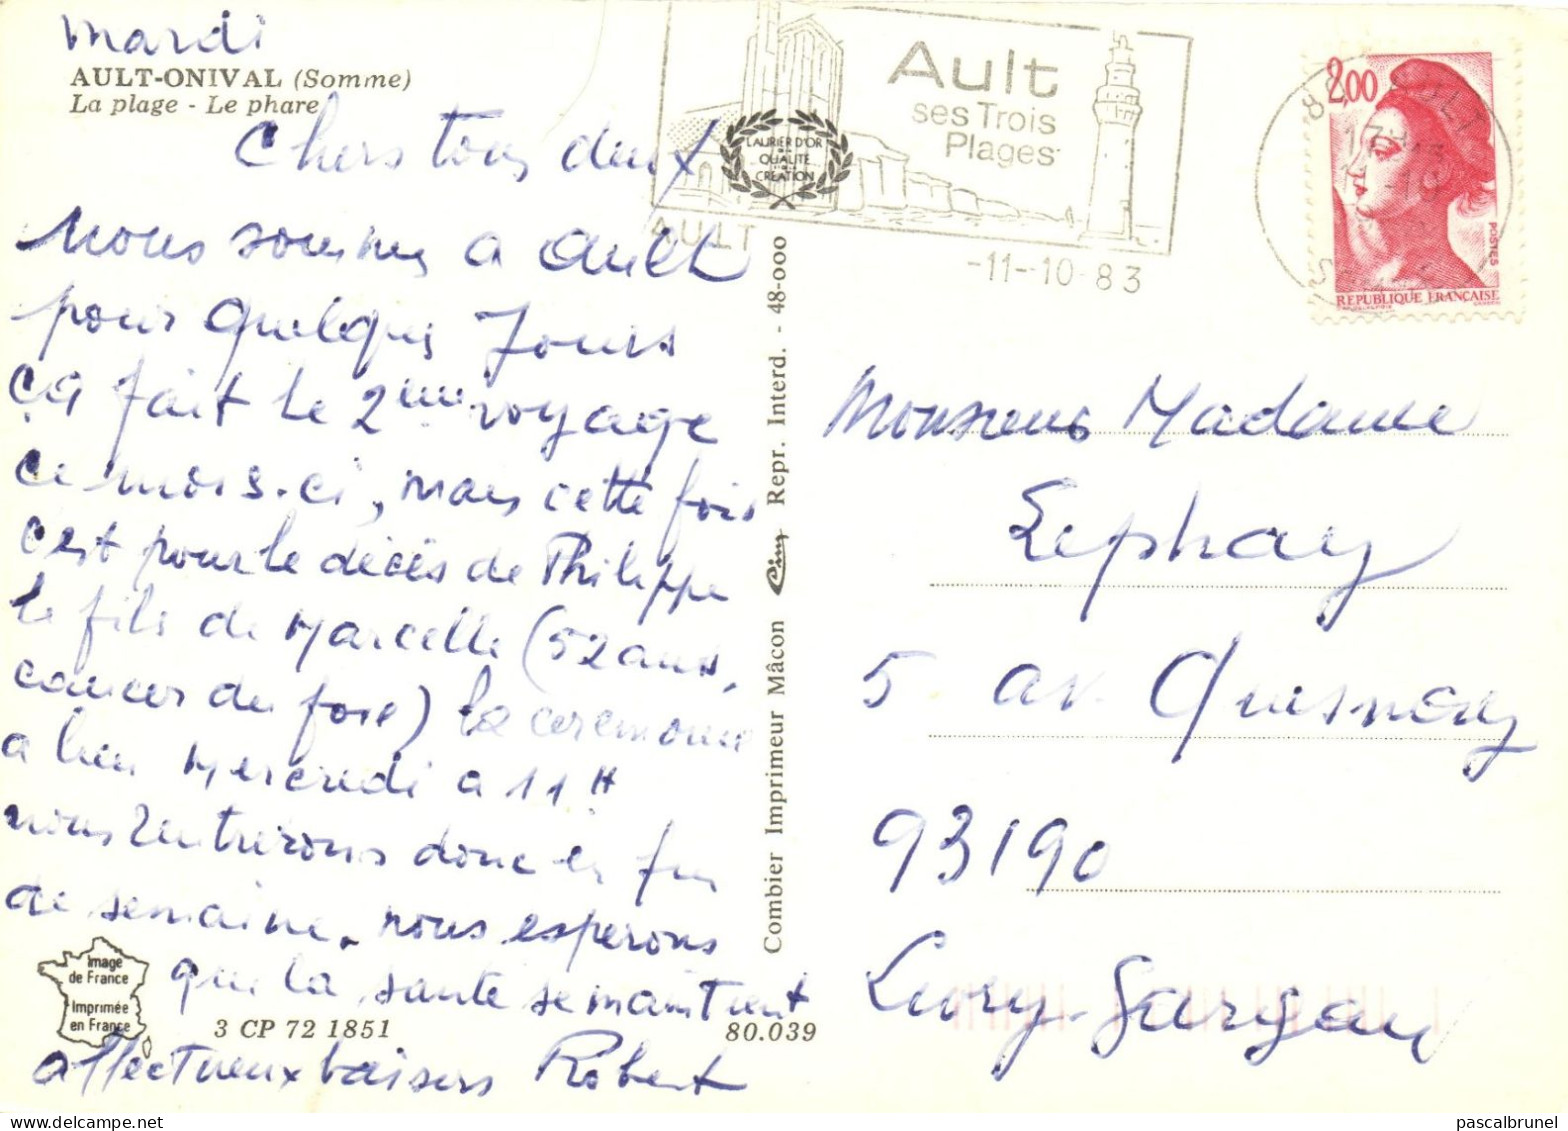 mardi
AULT-ONIVAL (Somme)
La plage - Le phare
Chers tous deux
nous sommes a Ault
pour quelques Jours
ça fait le 2ème voyage
ce mois-ci, mais cette fois
c'est pour le décès de Philippe
le fils de Marcelle (52 ans,
cancer du foie) la ceremonie
a lieu Mercredi a 11H
nous rentrerons donc en fin
de semaine. nous esperons
que la santé se maintient
affectueux baisers Robert
Image
de France
Imprimée
en France
3 CP 72 1851
80.039
Combier Imprimeur Mâcon Cim Repr. Interd. - 48-000
LAURIER D'OR
DE LA
QUALITE
CREATION
Ault
ses Trois
Plages
AULT
-11-10-83
2,00
POSTES
REPUBLIQUE FRANÇAISE
80 AULT
Monsieur Madame
Lephay
5 av. Quesnay
93190
Livry-Gargan
pascalbrunel